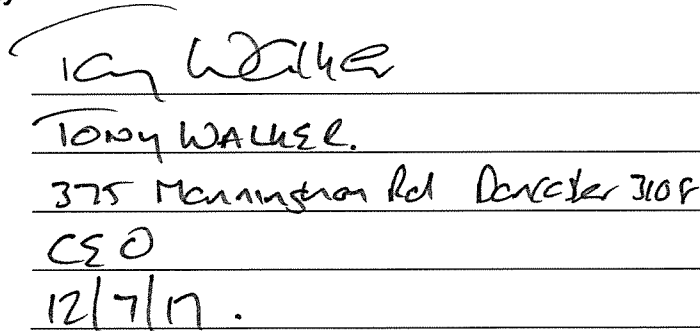 Tony Walker
TONY WALKER.
375 Manningham Rd Doncaster 3108
CEO
12/7/17.